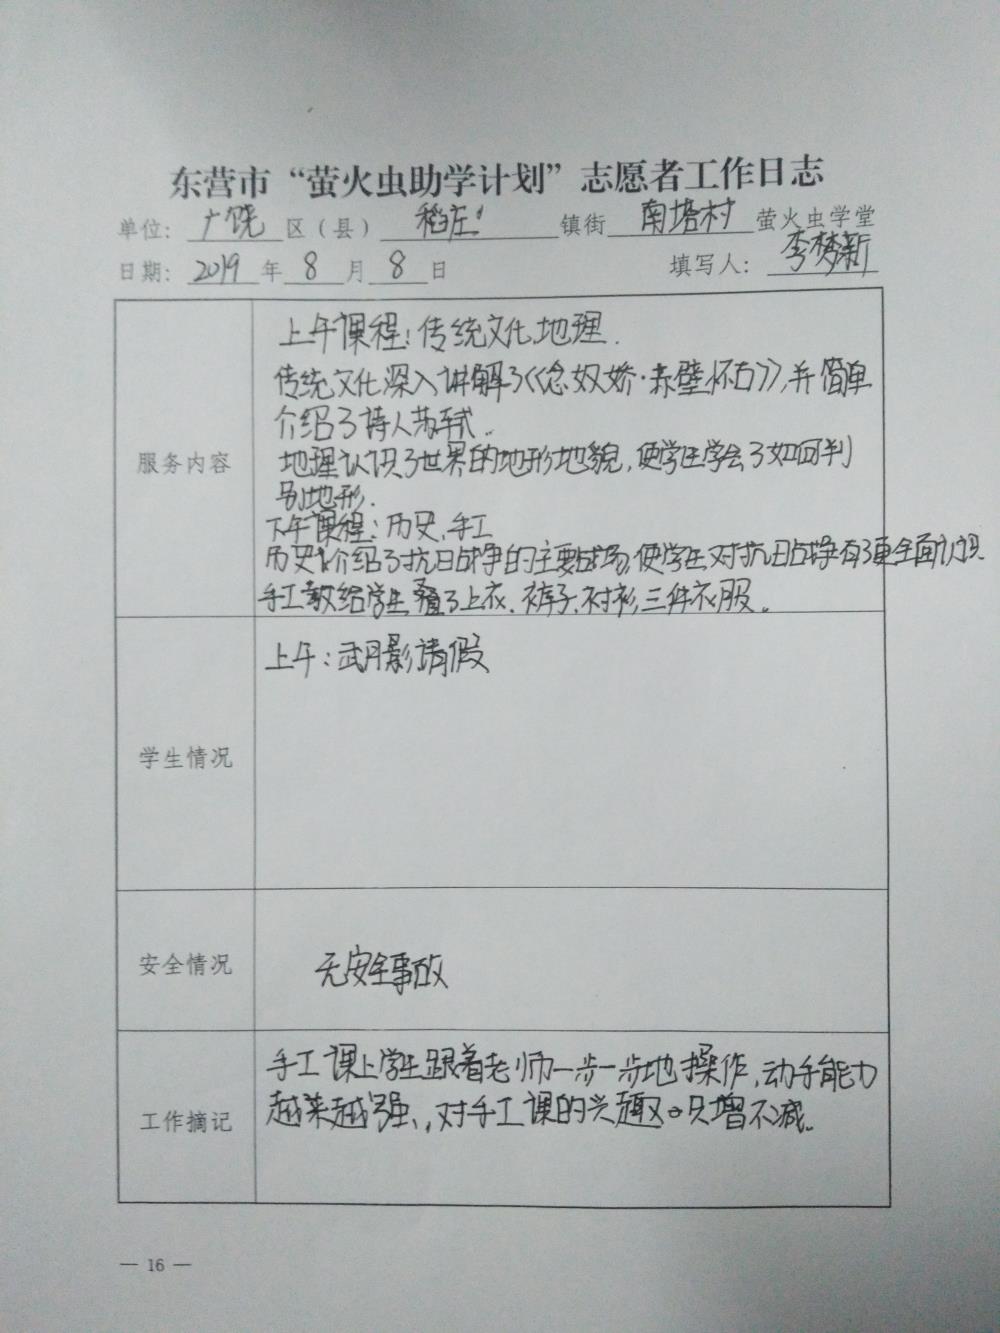 东营市“萤火虫助学计划”志愿者工作日志
单位：广饶区（县）稻庄镇街南塔村萤火虫学堂
日期：2019年8月8日 填写人：李梦新
服务内容
上午课程：传统文化、地理.
传统文化深入讲解了《念奴娇·赤壁怀古》，并简单
介绍了诗人苏轼.
地理认识了世界的地形地貌，使学生学会了如何判
别地形.
下午课程：历史、手工
历史介绍了抗日战争的主要战场，使学生对抗日战争有了更全面认识
手工教给学生叠了上衣、裤子、衬衫三件衣服。
学生情况
上午：武月影请假
安全情况
无安全事故
工作摘记
手工课上学生跟着老师一步一步地操作，动手能力
越来越强，对手工课的兴趣只增不减.
— 16 —